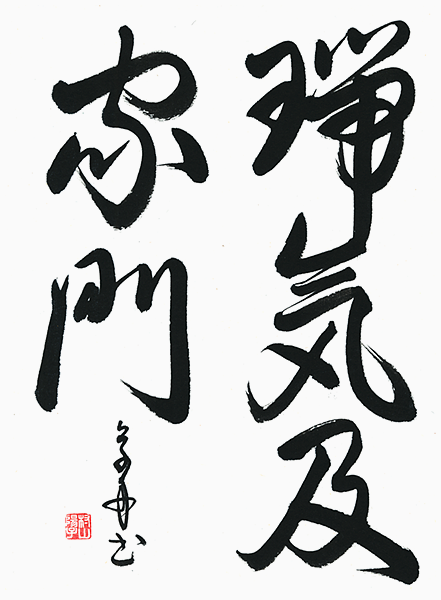 瑞気及
家門